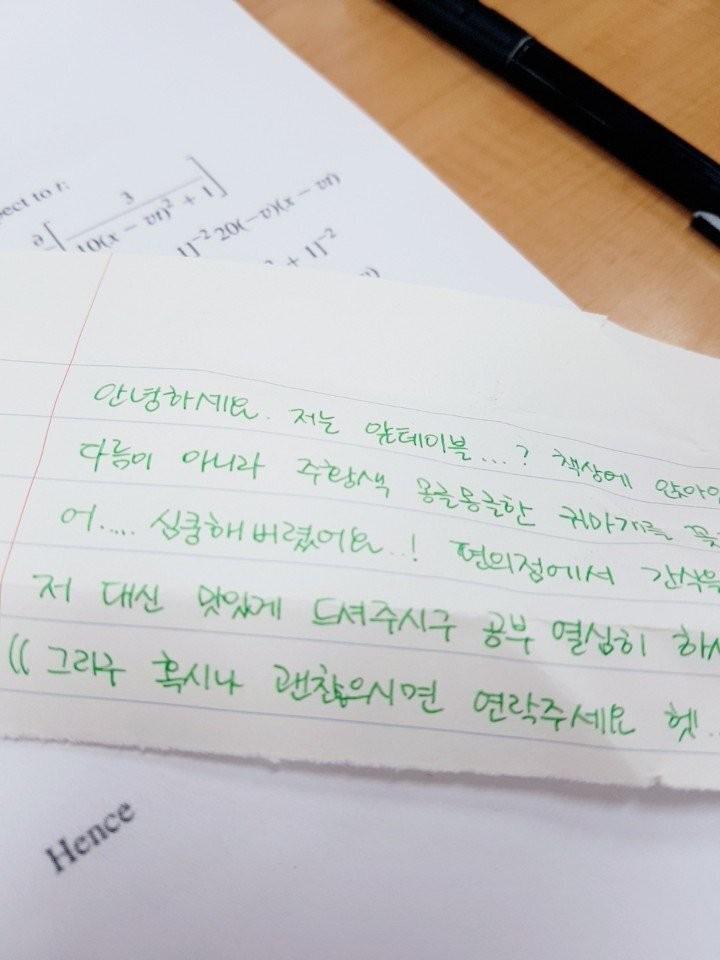 pect to t:
∂ [ 3
10(x − vt)² + 1 ]
1]⁻² 20(−v)(x − vt)
² + 1]⁻²
안녕하세요. 저는 앞테이블...? 책상에 앉아
다름이 아니라 주황색 몽글몽글한 귀마개를 꽂
어..... 심쿵해버렸어요..! 편의점에서 간식을
저 대신 맛있게 드셔주시구 공부 열심히 하시
(( 그리구 혹시나 괜찮으시면 연락주세요 헷..
Hence